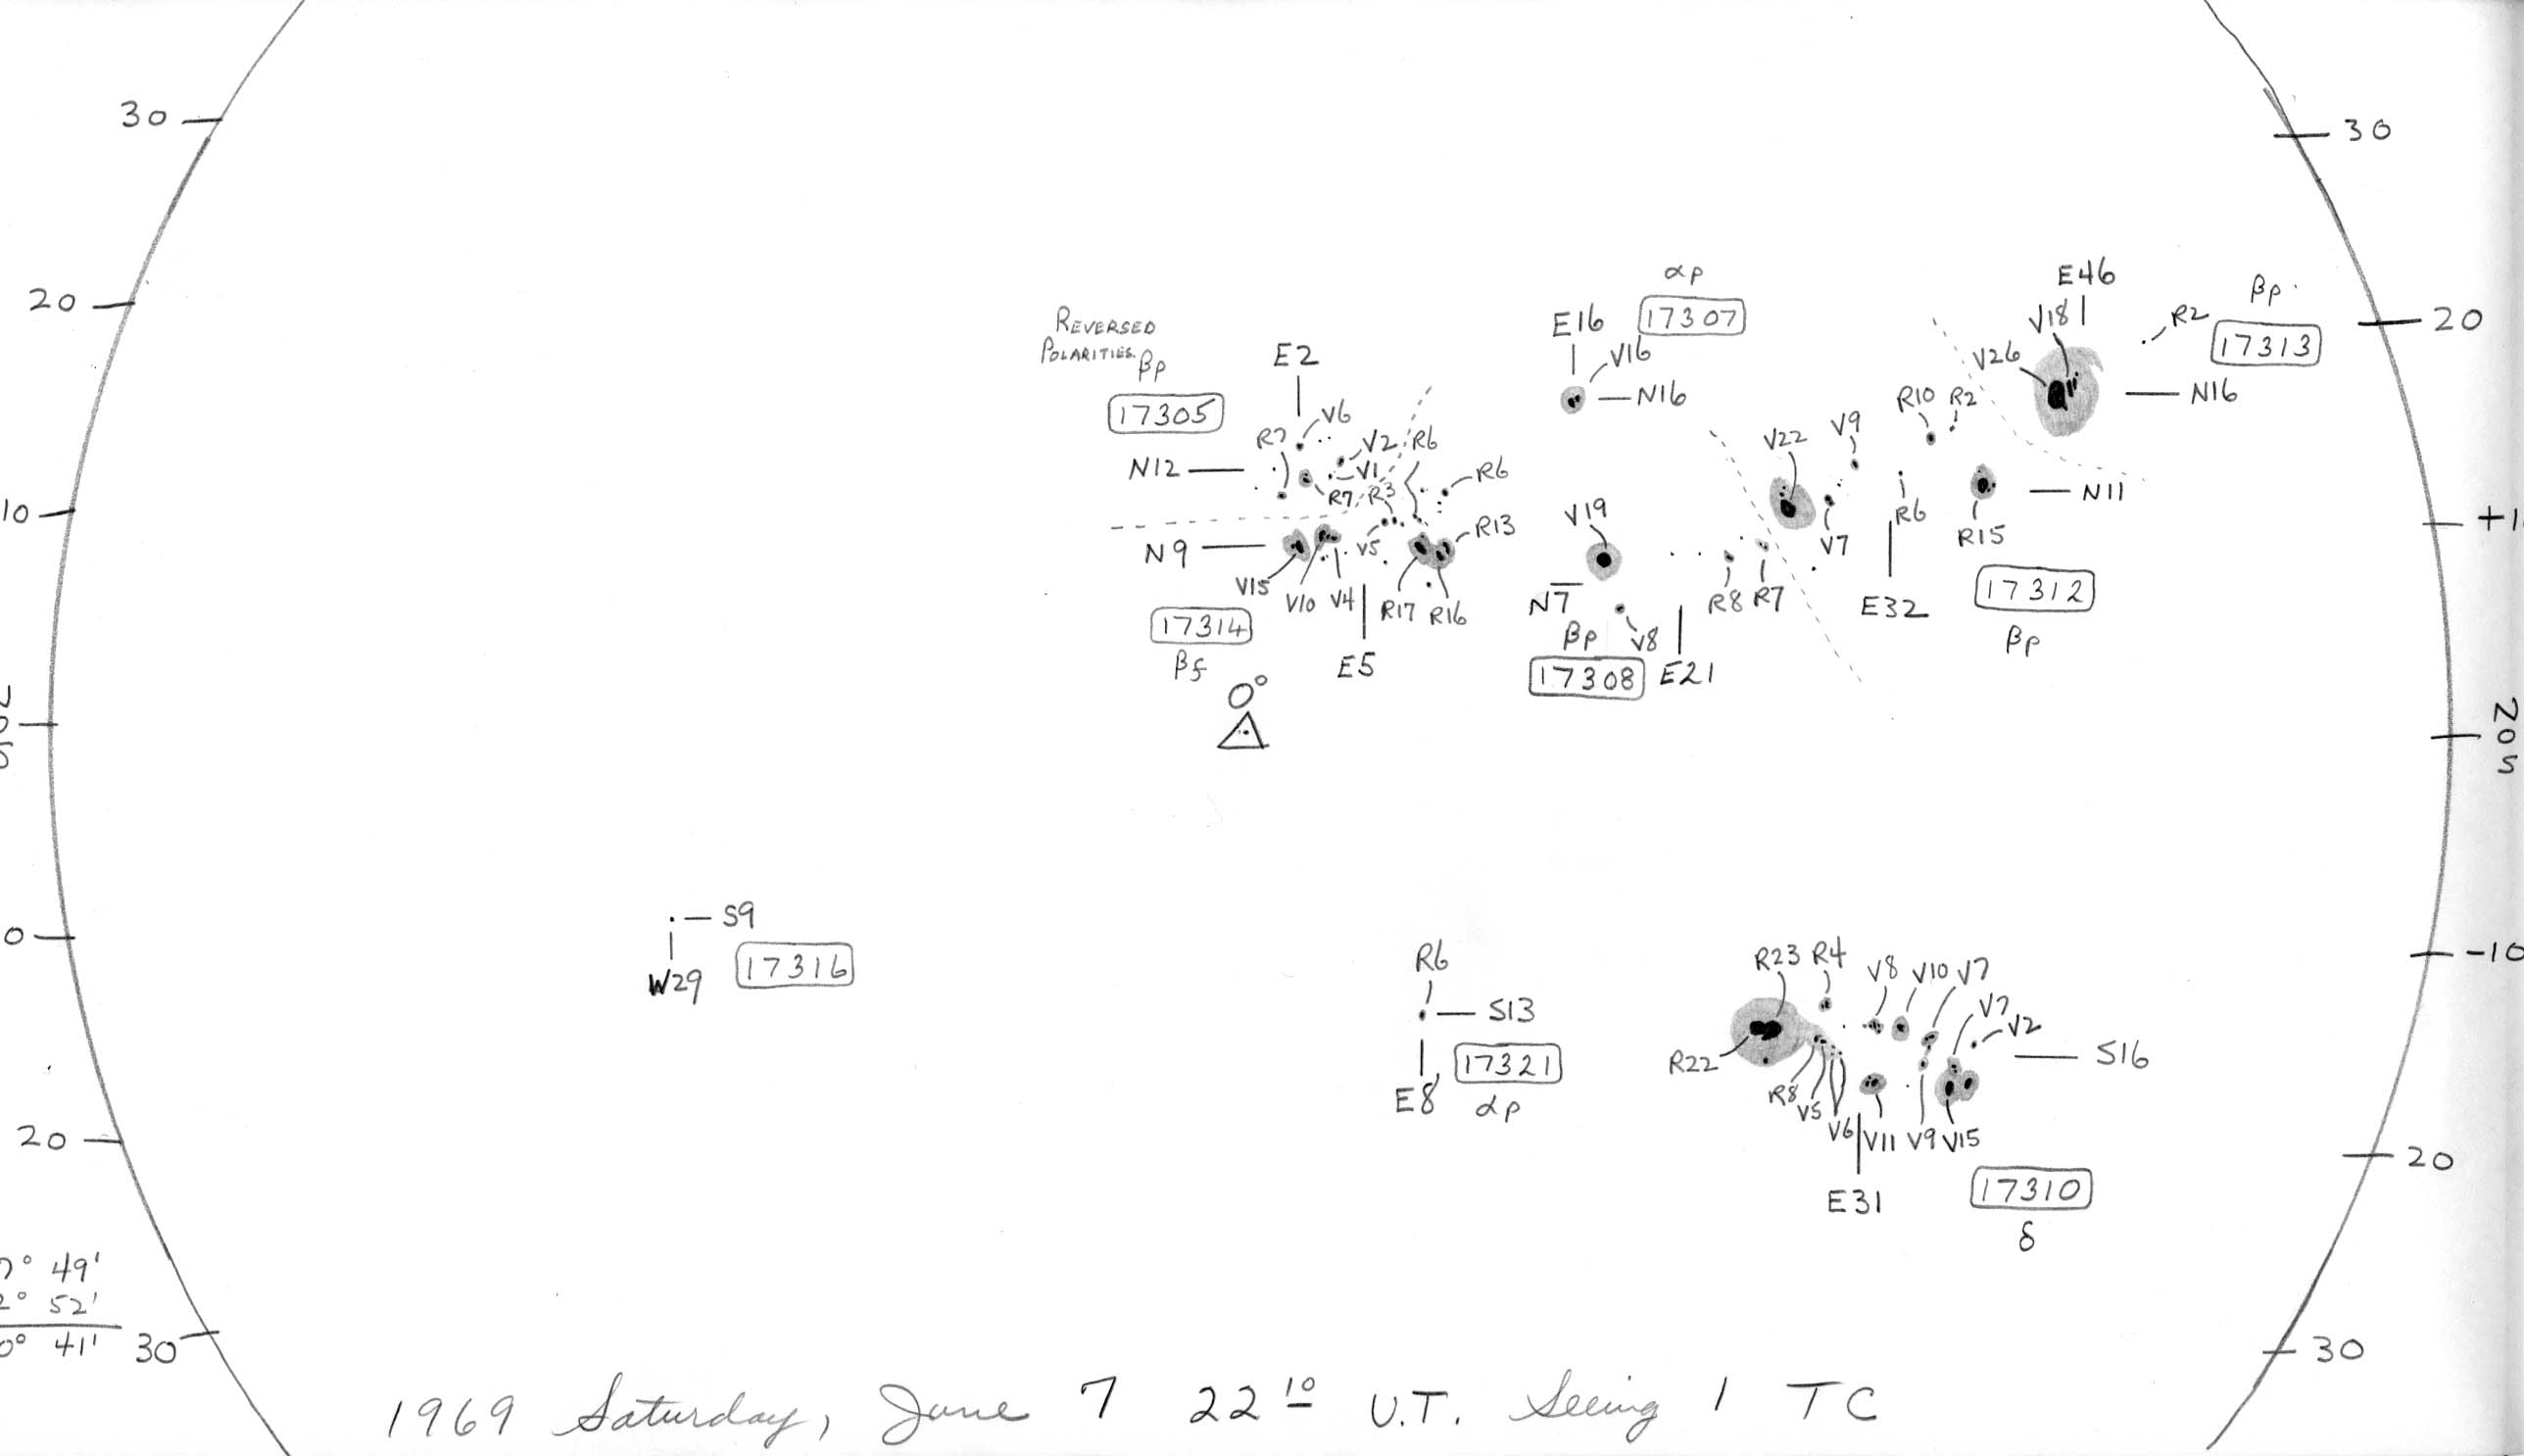 30
30
20
20
10
+1
N
0
S
N
0
S
0
-10
20
20
30
30
REVERSED
POLARITIES. βp
17305
E2
V6
R7
V2
R6
N12
V1
R7
R3
R6
N9
V5
R13
V15
V10
V4
R17
R16
17314
βf
E5
0°
αp
17307
E16
V16
N16
V19
N7
βp
V8
17308
E21
R8
R7
E46
V18
V26
R2
βp
17313
N16
R10
R2
V9
V22
N11
V7
R6
R15
E32
17312
βp
S9
W29
17316
R6
S13
17321
E8
αp
R23
R4
V8
V10
V7
V7
V2
R22
S16
R8
V5
V6
V11
V9
V15
E31
17310
δ
7° 49'
2° 52'
0° 41'
1969 Saturday, June 7 22 10 U.T. Seeing 1 TC